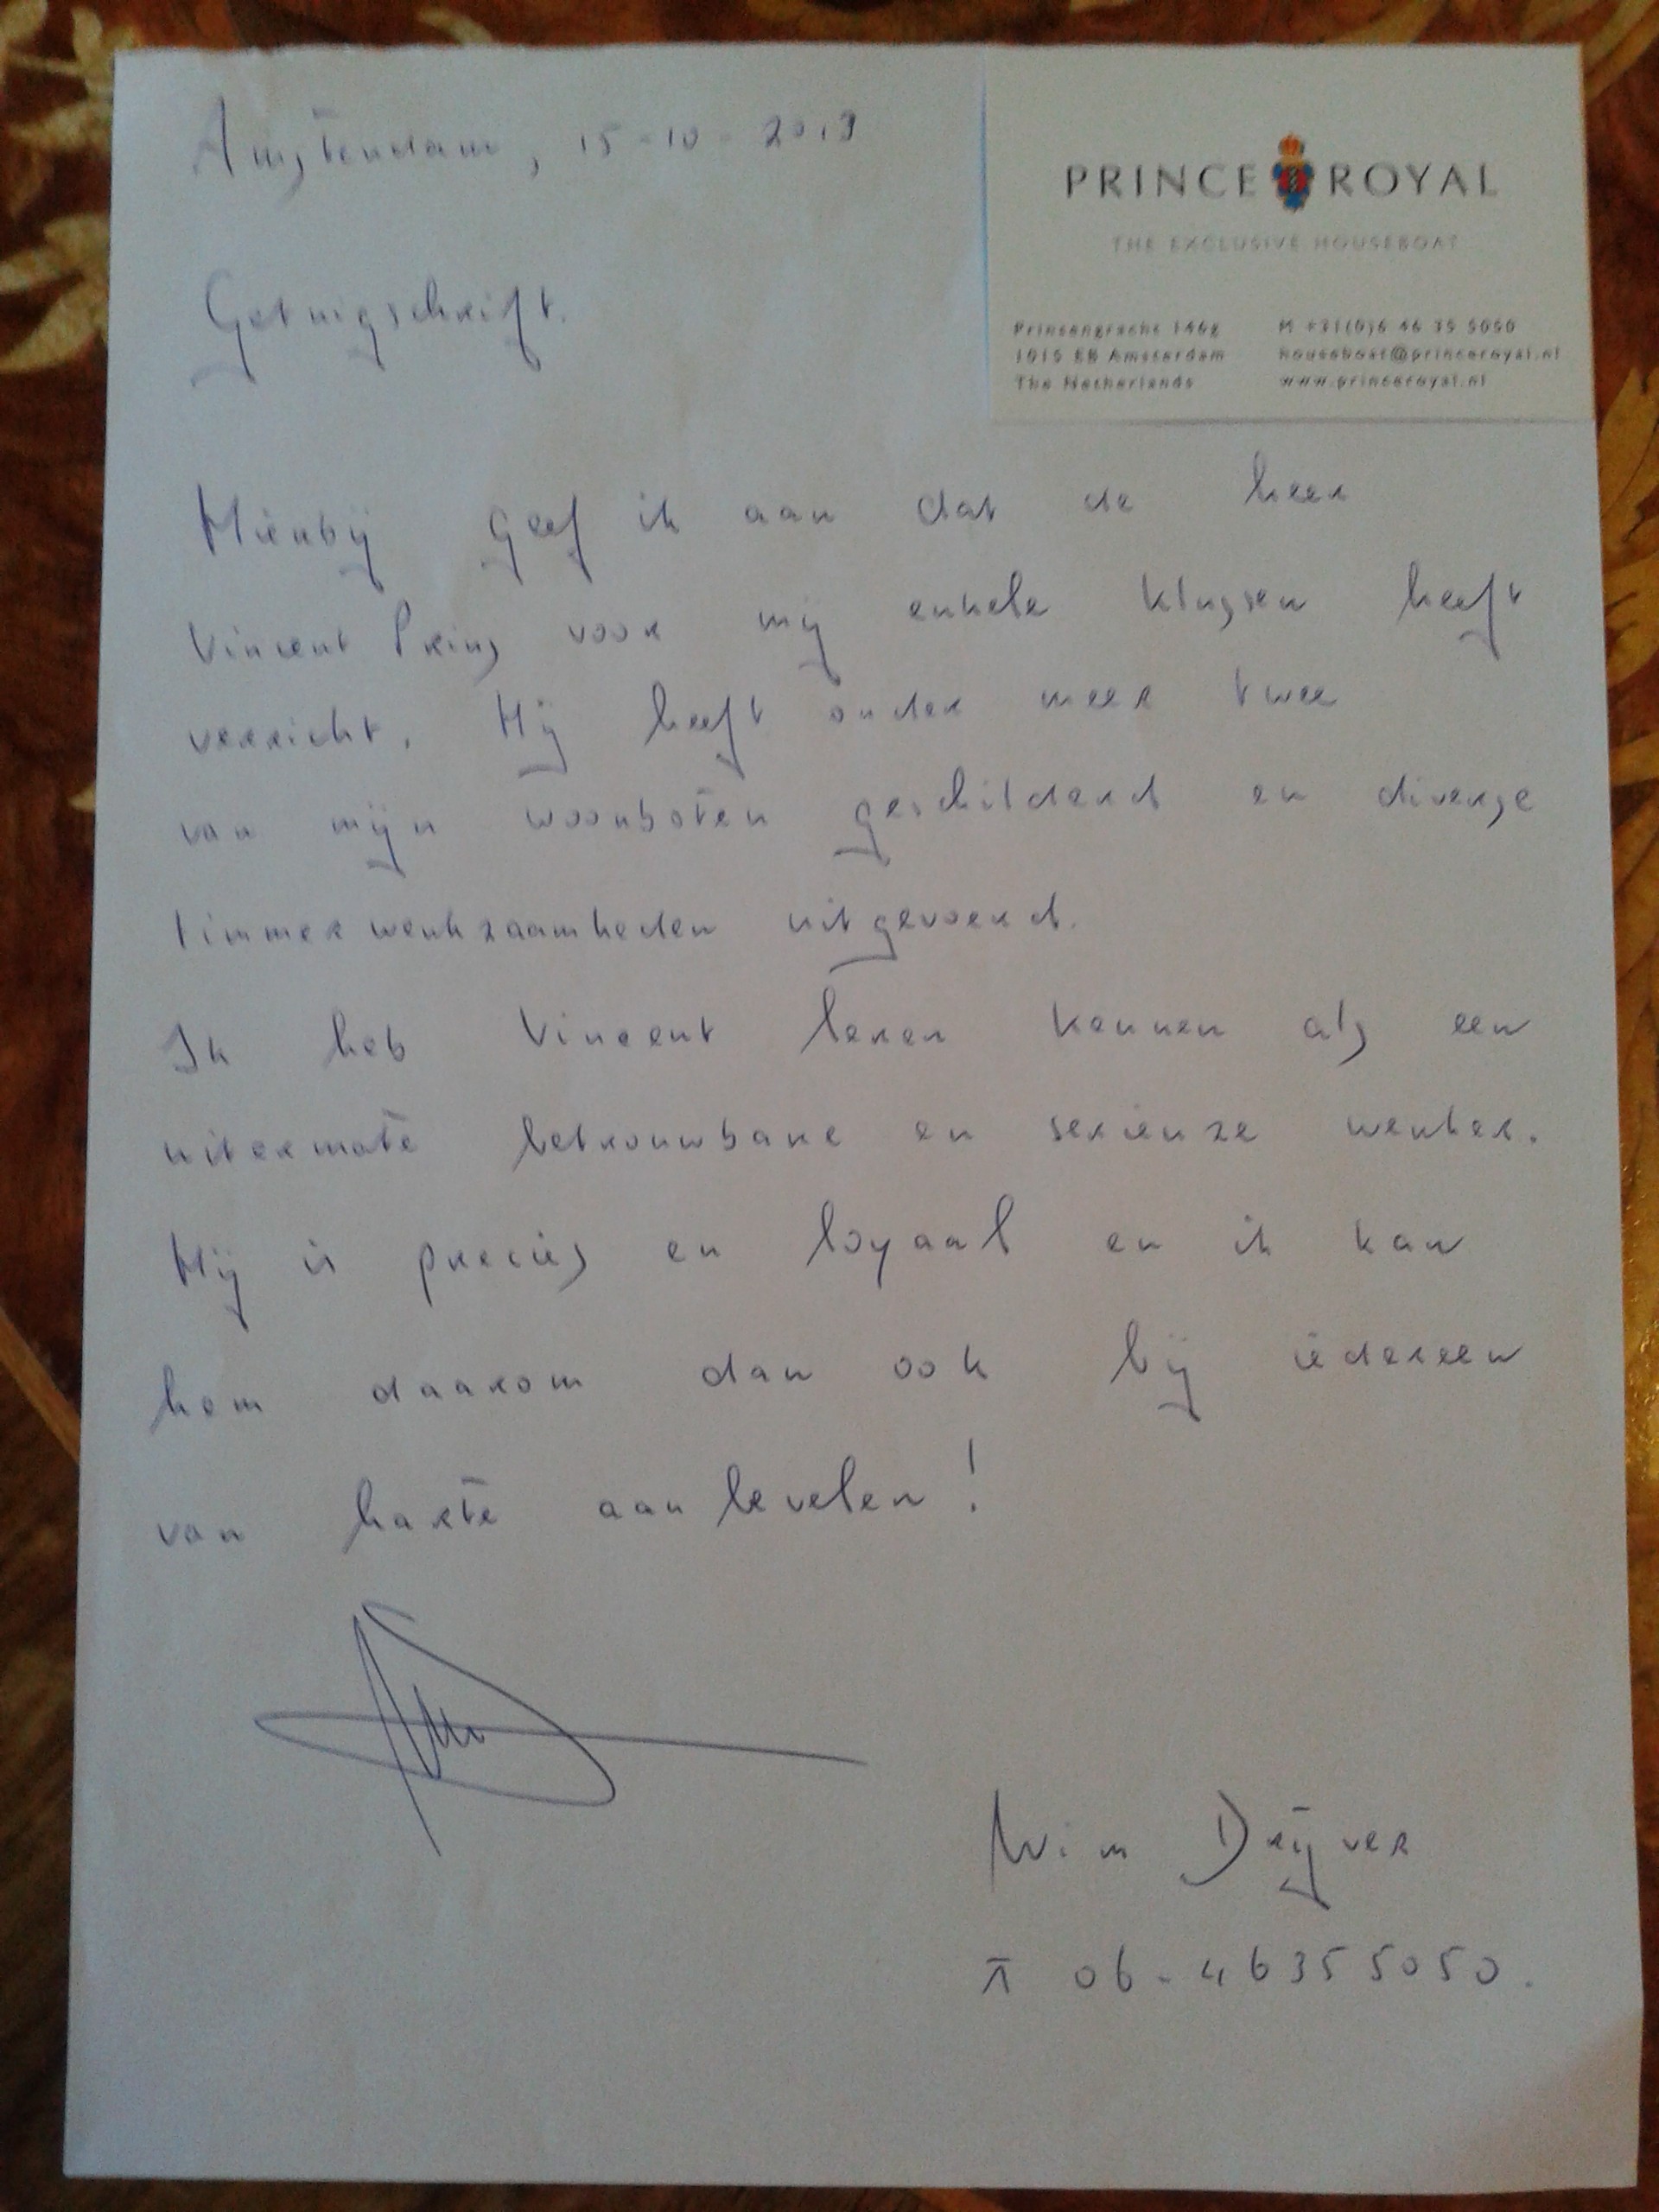 Amsterdam, 15-10-2013
PRINCE ROYAL
THE EXCLUSIVE HOUSEBOAT
Prinsengracht 146g
1015 EB Amsterdam
The Netherlands
M +31(0)6 46 35 5050
houseboat@princeroyal.nl
www.princeroyal.nl
Getuigschrift.
Hierbij geef ik aan dat de heer
Vincent Prins voor mij enkele klussen heeft
verricht. Hij heeft onder meer twee
van mijn woonboten geschilderd en diverse
timmerwerkzaamheden uitgevoerd.
Ik heb Vincent leren kennen als een
uitermate betrouwbare en serieuze werker.
Hij is precies en loyaal en ik kan
hem daarom dan ook bij iedereen
van harte aanbevelen!
Wim Drijver
T 06-46355050.